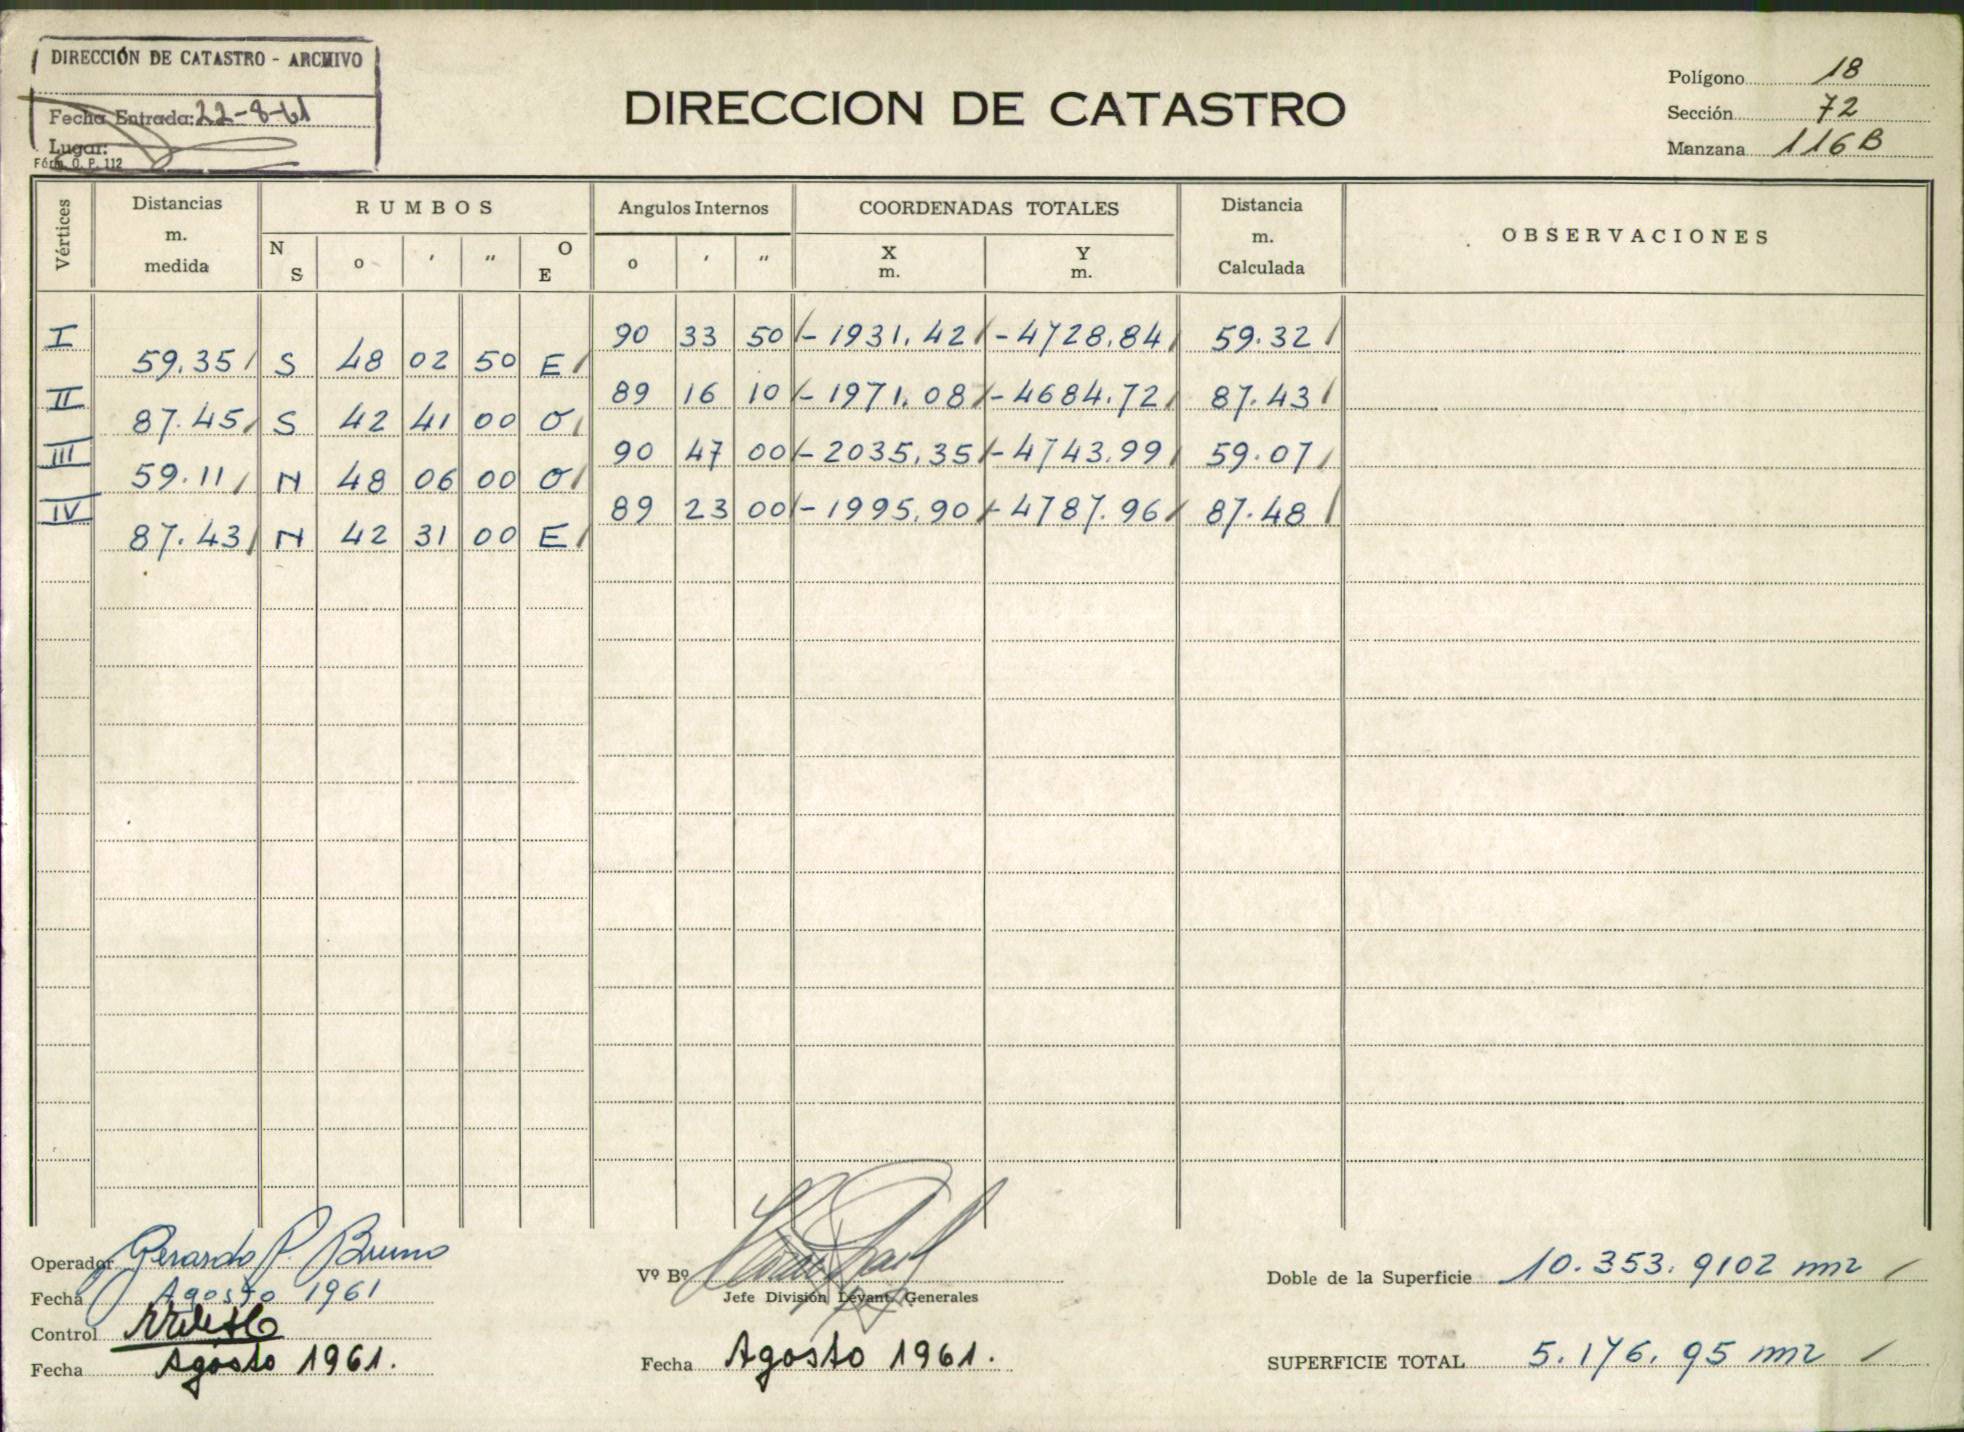 DIRECCIÓN DE CATASTRO - ARCHIVO
Fecha Entrada: 22-8-61
Lugar:
Fórm. O. P. 112
DIRECCION DE CATASTRO
Polígono 18
Sección 72
Manzana 116B
Vértices
Distancias m. medida
RUMBOS
N S o ' " O E
Angulos Internos
o ' "
COORDENADAS TOTALES
X m. Y m.
Distancia m. Calculada
OBSERVACIONES
I 90 33 50 - 1931.42 - 4728.84 59.32
59.35 S 48 02 50 E
II 89 16 10 - 1971.08 - 4684.72 87.43
87.45 S 42 41 00 O
III 90 47 00 - 2035.35 - 4743.99 59.07
59.11 N 48 06 00 O
IV 89 23 00 - 1995.90 - 4787.96 87.48
87.43 N 42 31 00 E
Operador Gerardo P. Bruno
Fecha Agosto 1961
Control
Fecha Agosto 1961.
Vº Bº
Jefe División Levant. Generales
Fecha Agosto 1961.
Doble de la Superficie 10.353.9102 m2
SUPERFICIE TOTAL 5.176.95 m2